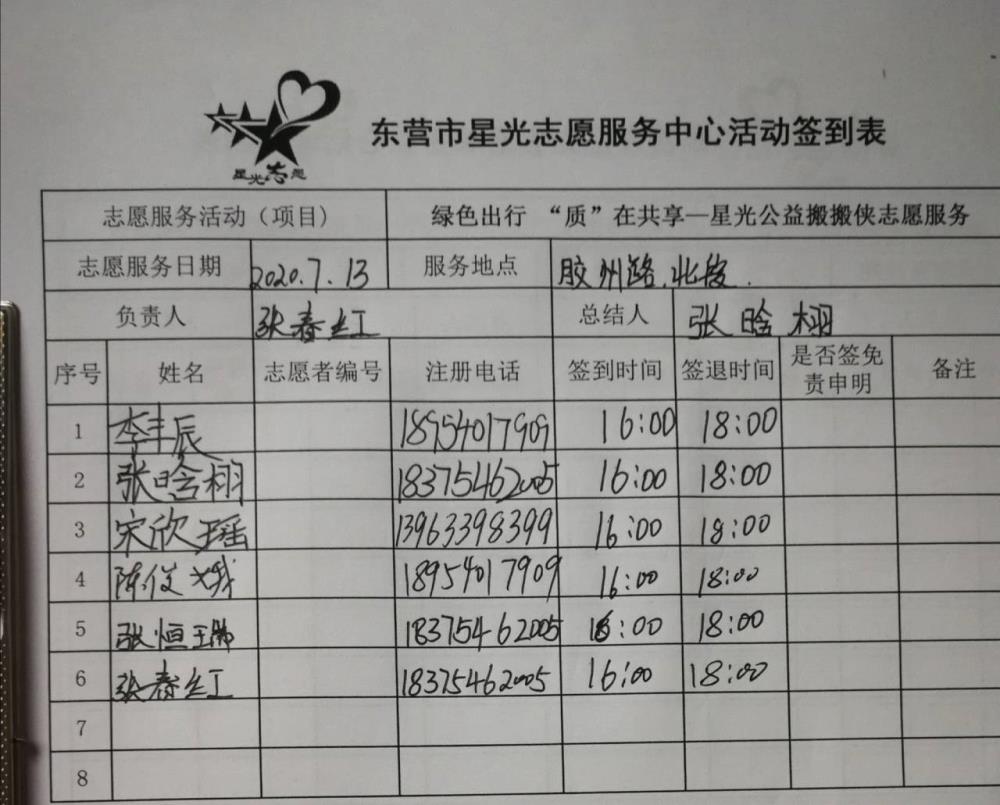 星光志愿
东营市星光志愿服务中心活动签到表
志愿服务活动（项目） 绿色出行 “质”在共享—星光公益搬搬侠志愿服务
志愿服务日期 2020.7.13 服务地点 胶州路.北段.
负责人 张春红 总结人 张晗栩
序号 姓名 志愿者编号 注册电话 签到时间 签退时间 是否签免责申明 备注
1 李丰辰 18954017909 16:00 18:00
2 张晗栩 18375462005 16:00 18:00
3 宋欣瑶 13963398399 16:00 18:00
4 陈俊娥 18954017909 16:00 18:00
5 张恒瑞 18375462005 16:00 18:00
6 张春红 18375462005 16:00 18:00
7
8